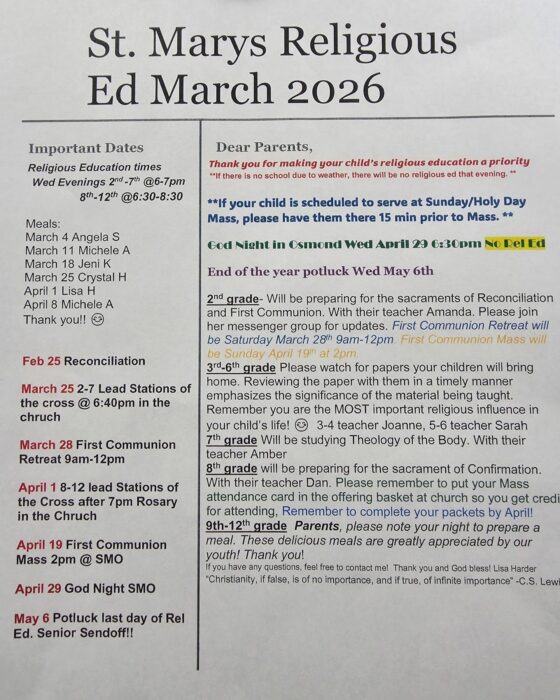 St. Marys Religious
Ed March 2026
Important Dates
Religious Education times
Wed Evenings 2nd-7th @6-7pm
8th-12th @6:30-8:30
Meals:
March 4 Angela S
March 11 Michele A
March 18 Jeni K
March 25 Crystal H
April 1 Lisa H
April 8 Michele A
Thank you!! 😊
Feb 25 Reconciliation
March 25 2-7 Lead Stations of
the cross @ 6:40pm in the
chruch
March 28 First Communion
Retreat 9am-12pm
April 1 8-12 lead Stations of
the Cross after 7pm Rosary
in the Chruch
April 19 First Communion
Mass 2pm @ SMO
April 29 God Night SMO
May 6 Potluck last day of Rel
Ed. Senior Sendoff!!
Dear Parents,
Thank you for making your child's religious education a priority
**If there is no school due to weather, there will be no religious ed that evening. **
**If your child is scheduled to serve at Sunday/Holy Day
Mass, please have them there 15 min prior to Mass. **
God Night in Osmond Wed April 29 6:30pm No Rel Ed
End of the year potluck Wed May 6th
2nd grade- Will be preparing for the sacraments of Reconciliation
and First Communion. With their teacher Amanda. Please join
her messenger group for updates. First Communion Retreat will
be Saturday March 28th 9am-12pm. First Communion Mass will
be Sunday April 19th at 2pm.
3rd-6th grade Please watch for papers your children will bring
home. Reviewing the paper with them in a timely manner
emphasizes the significance of the material being taught.
Remember you are the MOST important religious influence in
your child's life! 😊 3-4 teacher Joanne, 5-6 teacher Sarah
7th grade Will be studying Theology of the Body. With their
teacher Amber
8th grade will be preparing for the sacrament of Confirmation.
With their teacher Dan. Please remember to put your Mass
attendance card in the offering basket at church so you get credi
for attending, Remember to complete your packets by April!
9th-12th grade Parents, please note your night to prepare a
meal. These delicious meals are greatly appreciated by our
youth! Thank you!
If you have any questions, feel free to contact me! Thank you and God bless! Lisa Harder
"Christianity, if false, is of no importance, and if true, of infinite importance" -C.S. Lewi